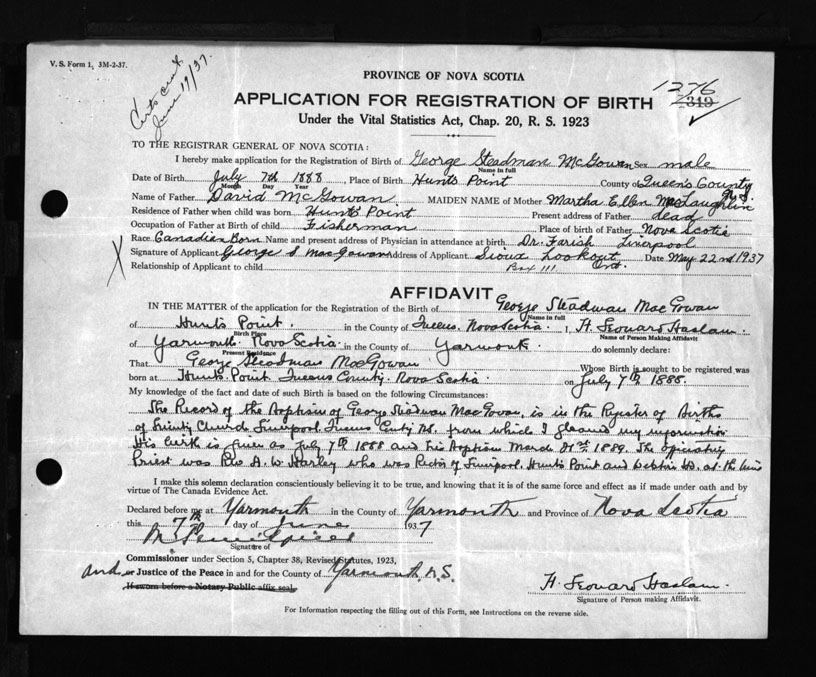 V. S. Form 1, 3M-2-37.
June 19/37.
PROVINCE OF NOVA SCOTIA
1276
APPLICATION FOR REGISTRATION OF BIRTH
Under the Vital Statistics Act, Chap. 20, R. S. 1923
TO THE REGISTRAR GENERAL OF NOVA SCOTIA:
I hereby make application for the Registration of Birth of George Steadman McGowan Sex male
Name in full
Date of Birth July 7th 1888, Place of Birth Hunts Point County of Queens County N.S.
Month Day Year
Name of Father David McGowan MAIDEN NAME of Mother Martha Ellen MacLaughlin
Residence of Father when child was born Hunts Point Present address of Father dead
Occupation of Father at Birth of child Fisherman Place of birth of Father Nova Scotia
Race Canadian Born Name and present address of Physician in attendance at birth Dr. Farish Liverpool
Signature of Applicant George S MacGowan Address of Applicant Sioux Lookout Date May 22nd 1937
Relationship of Applicant to child Box 111 Ont.
AFFIDAVIT
IN THE MATTER of the application for the Registration of the Birth of George Steadman MacGowan
Name in full
of Hunts Point. in the County of Queens, Nova Scotia. I, H. Leonard Haslam
Birth Place Name of Person Making Affidavit
of Yarmouth Nova Scotia in the County of Yarmouth do solemnly declare:
Present Residence
That George Steadman MacGowan Whose Birth is sought to be registered was
born at Hunts Point Queens County. Nova Scotia. on July 7th 1888.
My knowledge of the fact and date of such Birth is based on the following Circumstances:
The Record of the Baptism of George Steadman MacGowan, is in the Register of Births
of Trinity Church Liverpool Queens Cnty N.S. from which I gleaned my information
His birth is given as July 7th 1888 and his Baptism March 1889. The officiating
Priest was Rev A. W. Harley who was Rector of Liverpool, Hunts Point and at the time
I make this solemn declaration conscientiously believing it to be true, and knowing that it is of the same force and effect as if made under oath and by
virtue of The Canada Evidence Act.
Declared before me at Yarmouth in the County of Yarmouth and Province of Nova Scotia
this 7th day of June 1937
Signature of
Commissioner under Section 5, Chapter 38, Revised Statutes, 1923,
and or Justice of the Peace in and for the County of Yarmouth N.S.
If sworn before a Notary Public affix seal.
H. Leonard Haslam.
Signature of Person making Affidavit.
For Information respecting the filling out of this Form, see Instructions on the reverse side.